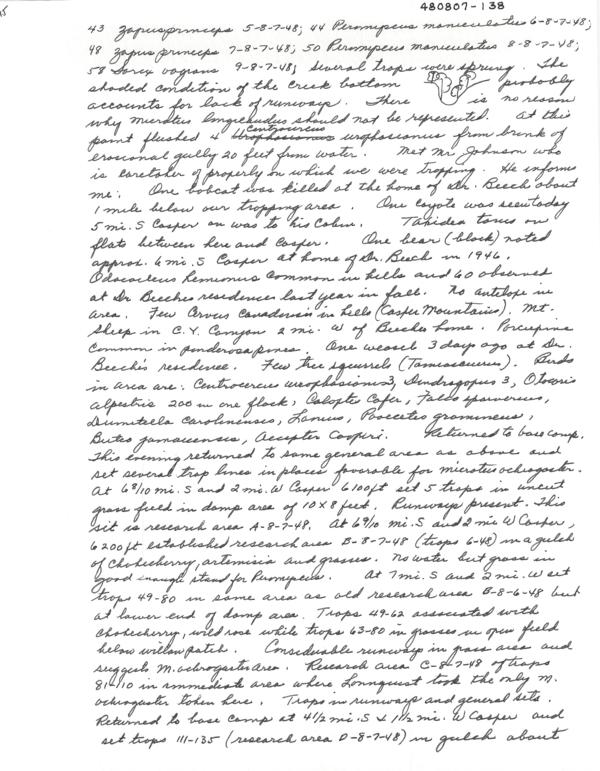 480807-138
43 Zapus princeps 5-8-7-48; 44 Peromyscus maniculatus 6-8-7-48;
48 Zapus princeps 7-8-7-48; 50 Peromyscus maniculatus 8-8-7-48;
58 Sorex vagrans 9-8-7-48; Several traps were sprung. The
shaded condition of the creek bottom probably
accounts for lack of runways. There is no reason
why microtus longicaudus should not be represented. At this
point flushed 4 Centrocercus urophasianus from brink of
erosional gully 20 feet from water. Met Mr Johnson who
is caretaker of property on which we were trapping. He informs
me: One bobcat was killed at the home of Dr. Beech about
1 mile below our trapping area. One coyote was seen today
5 mi. S Casper on way to his cabin. Taxidea taxus on
flats between here and Casper. One bear (black) noted
approx. 6 mi. S Casper at home of Dr. Beech in 1946.
Odocoileus hemionus common in hills and 60 observed
at Dr Beeches residence last year in fall. No antelope in
area. Few Cervus canadensis in hills (Casper Mountains). Mt.
Sheep in C.Y. Canyon 2 mi. W of Beeches home. Porcupine
common in ponderosa pines. One weasel 3 days ago at Dr.
Beech's residence. Few tree squirrels (Tamiasciurus). Birds
in area are: Centrocercus urophasianus 3, Dendragapus 3, Otocoris
alpestris 200 in one flock, Colaptes cafer, Falco sparverius,
Dumetella carolinensis, Lanius, Pooecetes gramineus,
Buteo jamaicensis, Accipiter cooperi. Returned to base camp.
This evening returned to same general area as above and
set several trap lines in places favorable for microtus ochrogaster.
At 6 8/10 mi. S and 2 mi. W Casper 6100 ft set 5 traps in uncut
grass field in damp area of 10 x 8 feet. Runways present. This
sit is research area A-8-7-48. At 6 9/10 mi. S and 2 mi W Casper,
6200 ft established research area B-8-7-48 (traps 6-48) in a gulch
of chokecherry, artemisia and grasses. No water but grass in
good enough stand for Peromyscus. At 7 mi. S and 2 mi. W set
traps 49-80 in same area as old research area B-8-6-48 but
at lower end of damp area. Traps 49-62 associated with
chokecherry, wild rose while traps 63-80 in grasses in open field
below willow patch. Considerable runways in grass area and
suggests M. ochrogaster area. Research area C-8-7-48 of traps
81-110 in immediate area where Lonnquist took the only M.
ochrogaster taken here. Traps in runways and general sets.
Returned to base camp at 4 1/2 mi. S & 1 1/2 mi. W Casper and
set traps 111-135 (research area D-8-7-48) in gulch about